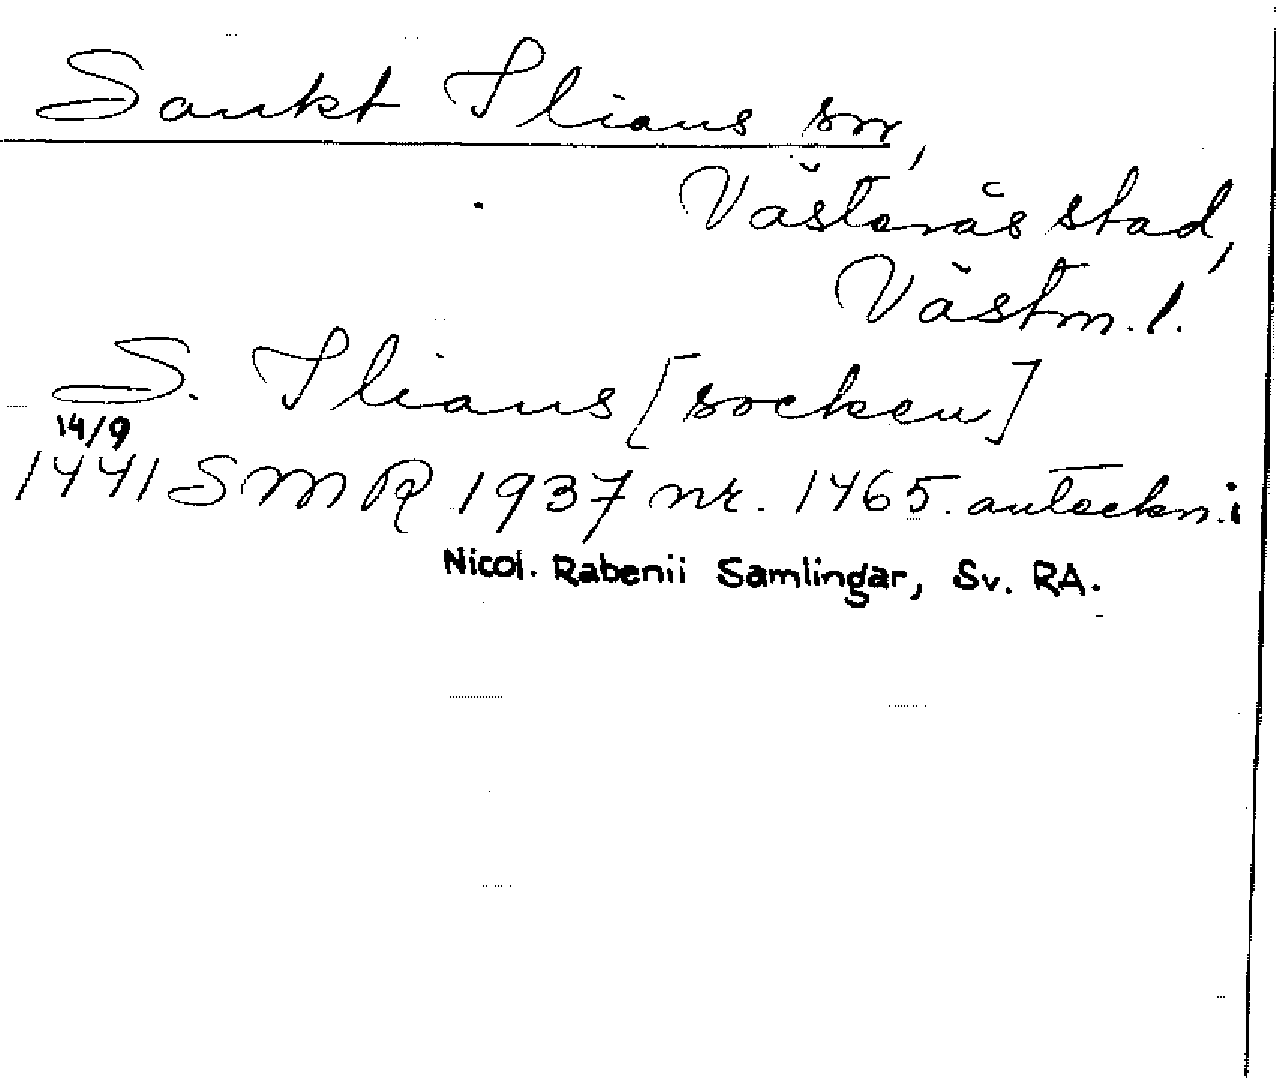 Sankt Ilians sn,
Västerås stad,
Västm. l.
S. Ilians [socken]
14/9
1441 SMR 1937 nr. 1465. anteckn. i
Nicol. Rabenii Samlingar, Sv. RA.